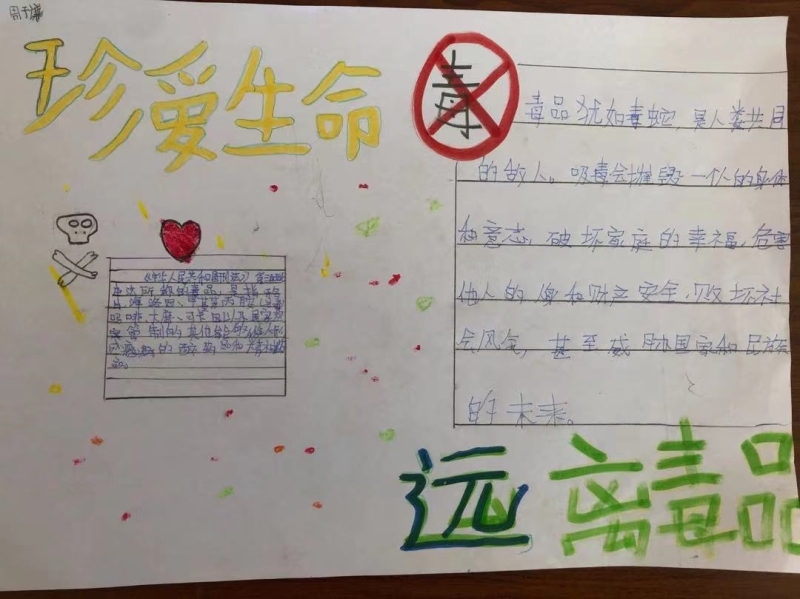 珍爱生命
毒
毒品犹如毒蛇，是人类共同
的敌人。吸毒会摧毁一个人的身体
和意志，破坏家庭的幸福，危害
他人的身和财产安全，败坏社
会风气，甚至威胁国家和民族
的未来。
《中华人民共和国刑法》第三百
所称的毒品，是指
海洛因、甲基苯丙胺
吗啡、大麻、可卡因以及国家规
管制的其他能够使人形
成瘾癖的麻醉药品和精神药
品。
远离毒品